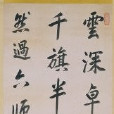 雲深卓
千旗半
然過六師